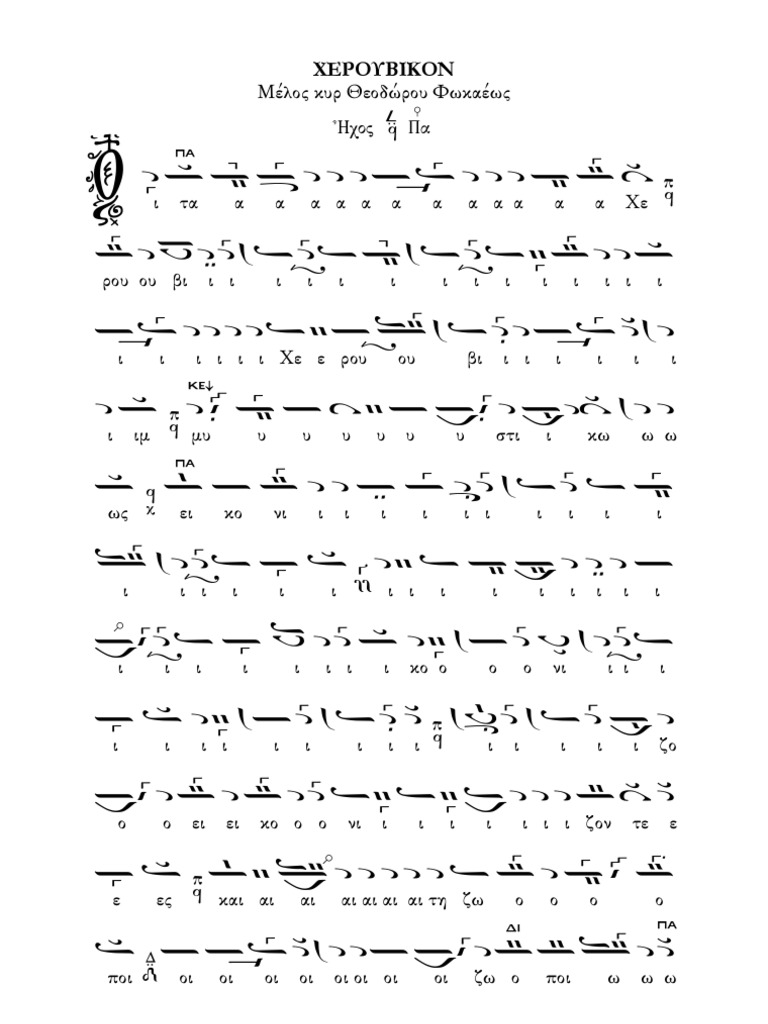 ΧΕΡΟΥΒΙΚΟΝ
Μέλος κυρ Θεοδώρου Φωκαέως
Ἦχος Πα
ΠΑ
Ο ι τα α α α α α α α α α α α α Χε
ρου ου βι ι ι ι ι ι ι ι ι ι ι ι ι ι ι ι
ι ι ι ι ι ι Χε ε ρου ου βι ι ι ι ι ι ι
ΚΕ
ι ιμ μυ υ υ υ υ υ υ στι ι κω ω ω
ΠΑ
ως ει κο νι ι ι ι ι ι ι ι ι ι ι
ι ι ι ι ι ι ι ι ι ι ι ι ι ι
ι ι ι ι ι ι ι ι κο ο ο ο νι ι ι ι
ι ι ι ι ι ι ι ι ι ι ι ι ι ι ζο
ο ο ει ει κο ο ο νι ι ι ι ι ι ι ζον τε ε
ε ες και αι αι αι αι αι αι τη ζω ο ο ο ο
ΔΙ ΠΑ
ποι οι οι οι οι οι οι οι ζω ο ποι ω ω ω